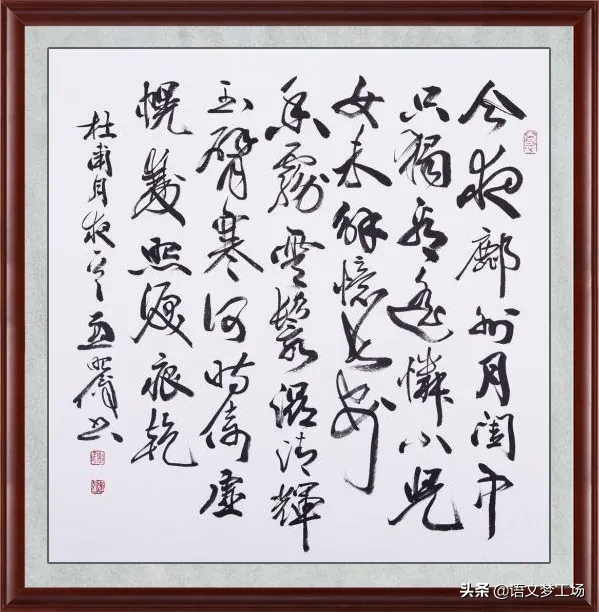 今夜鄜州月閨中
只獨看遙憐小兒
女未解憶長安
香霧雲鬟濕清輝
玉臂寒何時倚虛
幌雙照淚痕乾
杜甫月夜 書
头条 @语文梦工场